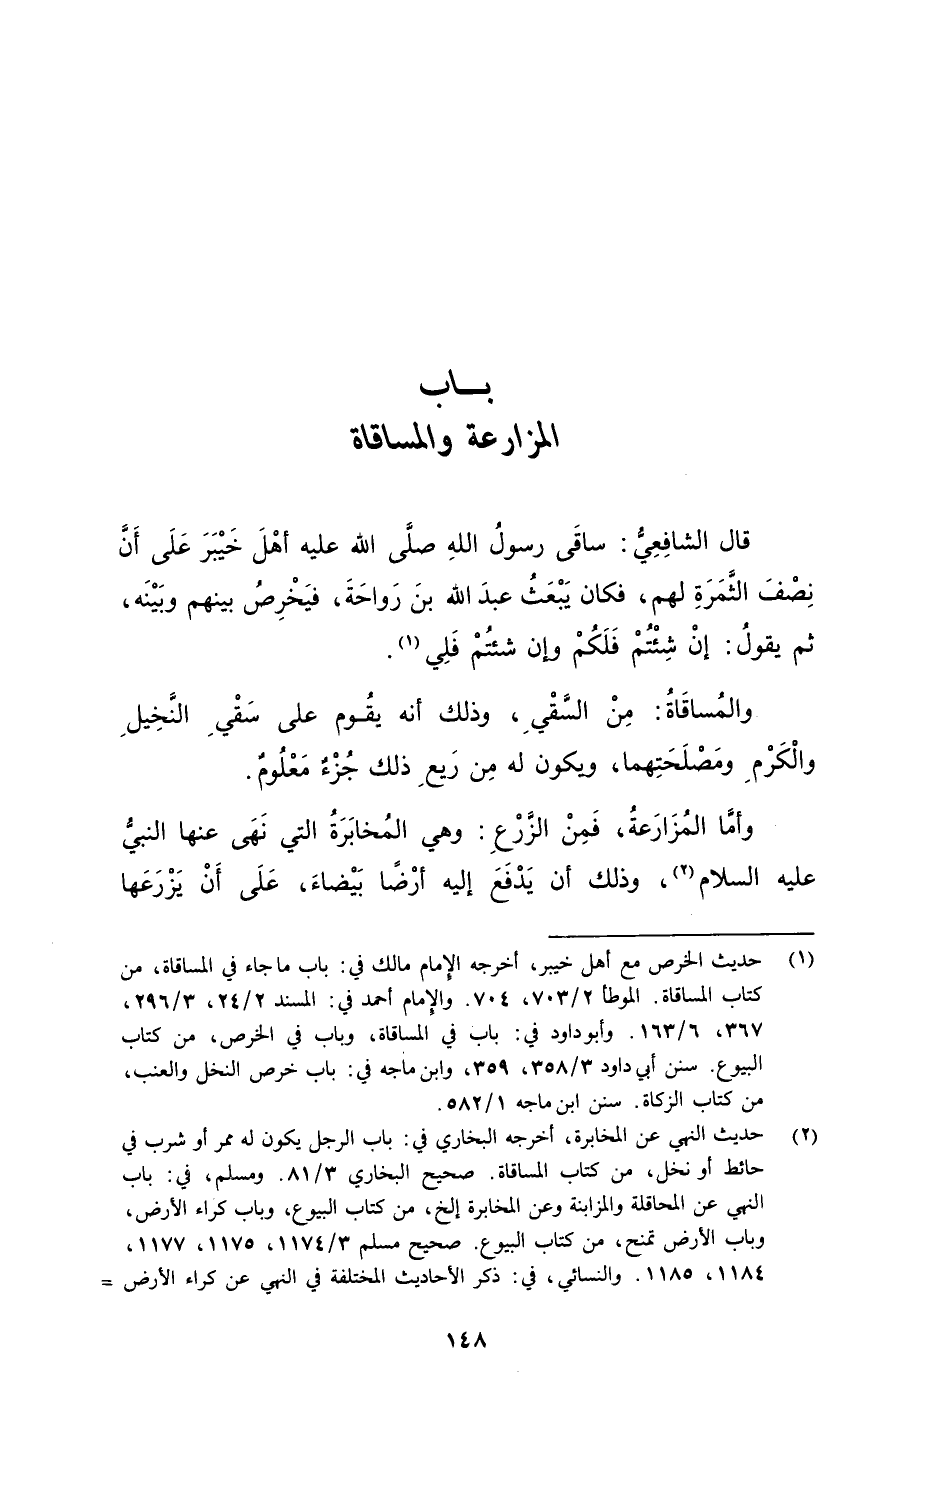 بـــاب
المزارعة والمساقاة
قال الشافِعِيُّ: ساقَى رسولُ اللهِ صلَّى الله عليه أهْلَ خَيْبَرَ عَلَى أَنَّ
نِصْفَ الثَّمَرَةِ لهم، فكان يَبْعَثُ عبدَ الله بنَ رَواحَةَ، فيَخْرِصُ بينهم وبَيْنَه،
ثم يقولُ: إنْ شِئْتُمْ فَلَكُمْ وإن شئتُمْ فَلِي(١).
والمُساقَاةُ: مِنْ السَّقْيِ، وذلك أنه يقُوم على سَقْيِ النَّخِيلِ
والْكَرْمِ ومَصْلَحَتِهما، ويكون له مِن رَيعِ ذلك جُزْءٌ مَعْلُومٌ.
وأمَّا المُزَارَعةُ، فَمِنْ الزَّرْعِ: وهي المُخابَرَةُ التي نَهَى عنها النبيُّ
عليه السلام(٢)، وذلك أن يَدْفَعَ إليه أرْضًا بَيْضاءَ، عَلَى أَنْ يَزْرَعَها
(١) حديث الخرص مع أهل خيبر، أخرجه الإمام مالك في: باب ما جاء في المساقاة، من
كتاب المساقاة. الموطأ ٧٠٣/٢، ٧٠٤. والإمام أحمد في: المسند ٢٤/٢، ٢٩٦/٣،
٣٦٧، ١٦٣/٦. وأبو داود في: باب في المساقاة، وباب في الخرص، من كتاب
البيوع. سنن أبي داود ٣٥٨/٣، ٣٥٩، وابن ماجه في: باب خرص النخل والعنب،
من كتاب الزكاة. سنن ابن ماجه ٥٨٢/١.
(٢) حديث النهي عن المخابرة، أخرجه البخاري في: باب الرجل يكون له ممر أو شرب في
حائط أو نخل، من كتاب المساقاة. صحيح البخاري ٨١/٣. ومسلم، في: باب
النهي عن المحاقلة والمزابنة وعن المخابرة إلخ، من كتاب البيوع، وباب كراء الأرض،
وباب الأرض تمنح، من كتاب البيوع. صحيح مسلم ١١٧٤/٣، ١١٧٥، ١١٧٧،
١١٨٤، ١١٨٥. والنسائي، في: ذكر الأحاديث المختلفة في النهي عن كراء الأرض =
١٤٨